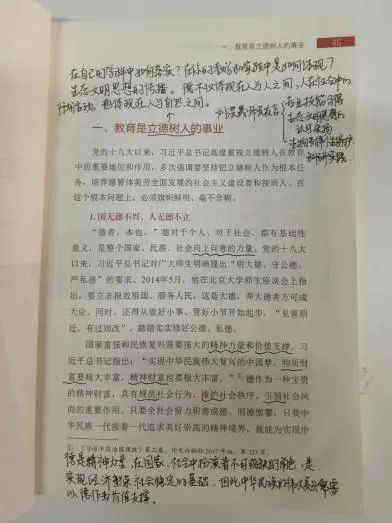 一、教育是立德树人的事业 45
在自己的学科中如何落实？在你的教育和实践中是如何体现？
生态文明思想的传播。德不仅体现在人与人之间，人在社会中的
行为活动，也体现在人与自然之间。
一、教育是立德树人的事业
党的十八大以来，习近平总书记高度重视立德树人在教育
中的重要地位和作用，多次强调要坚持把立德树人作为根本任
务，培养德智体美劳全面发展的社会主义建设者和接班人，在
这个根本问题上，必须旗帜鲜明、毫不含糊。
1.国无德不兴，人无德不立
“德者，本也。”德对于个人、对于社会，都有基础性
意义，是整个国家、民族、社会向上向善的力量。党的十八大
以来，习近平总书记对广大师生明确提出“明大德、守公德、
严私德”的要求。2014年5月，他在北京大学师生座谈会上指
出，要立志报效祖国、服务人民，这是大德，养大德者方可成
大业。同时，还得从做好小事、管好小节开始起步，“见善则
迁，有过则改”，踏踏实实修好公德、私德。
国家富强和民族复兴需要强大的精神力量和价值支撑。习
近平总书记指出：“实现中华民族伟大复兴的中国梦，物质财
富要极大丰富，精神财富也要极大丰富。”①德作为一种宝贵
的精神财富，具有规范社会行为、维护社会秩序、引领社会风
尚的重要作用。只要全社会努力积善成德、明德惟馨，只要中
华民族一代接着一代追求美好崇高的精神境界，就能为实现中
①《习近平谈治国理政》第二卷，外文出版社2017年版，第323页。
德是精神力量，在国家、社会中扮演着不可或缺的角色，是
实现经济繁荣社会稳定的基础，因此中华民族的伟大复兴需要
以德作为价值支撑。